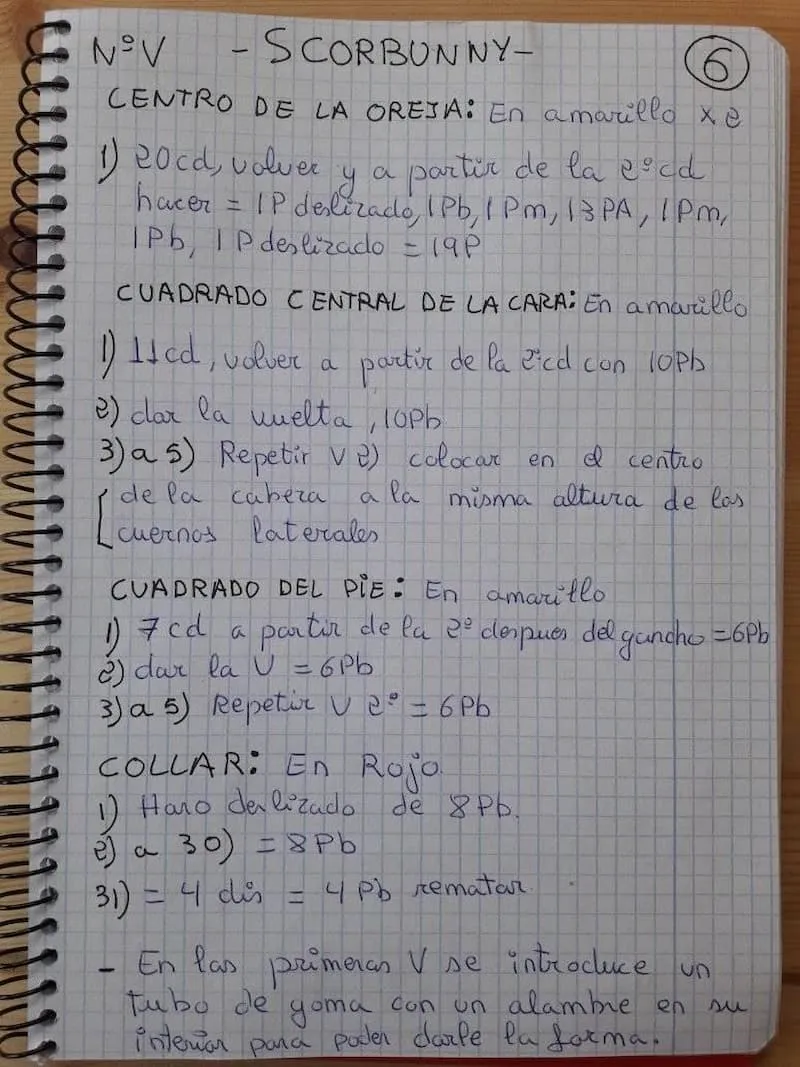 NºV - SCORBUNNY- 6
CENTRO DE LA OREJA: En amarillo x 2
1) 20cd, volver y a partir de la 2ºcd
hacer = 1P deslizado, 1Pb, 1Pm, 13PA, 1Pm,
1Pb, 1P deslizado = 19P
CUADRADO CENTRAL DE LA CARA: En amarillo
1) 11cd, volver a partir de la 2ºcd con 10Pb
2) dar la vuelta, 10Pb
3) a 5) Repetir V 2) colocar en el centro
de la cabeza a la misma altura de los
cuernos laterales
CUADRADO DEL PIE: En amarillo
1) 7cd a partir de la 2º despues del gancho = 6Pb
2) dar la V = 6Pb
3) a 5) Repetir V 2º = 6Pb
COLLAR: En Rojo.
1) Haro deslizado de 8Pb.
2) a 30) = 8Pb
31) = 4 dis = 4 Pb rematar.
- En las primeras V se introduce un
tubo de goma con un alambre en su
interior para poder darle la forma.